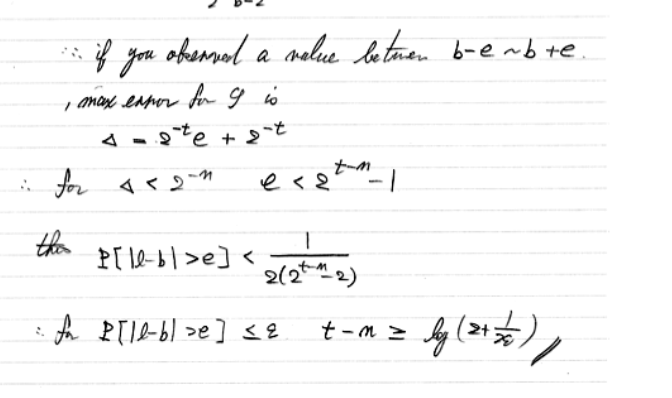 ∵ if you observed a value between b-e ~ b+e.
, max error for φ is
Δ = 2^{-t}e + 2^{-t}
∴ for Δ < 2^{-n} e < 2^{t-n} - 1
P[|l-b|>e] < 1/(2(2^{t-n}-2))
∴ for P[|l-b|>e] ≤ ε t-n ≥ lg(2+1/2ε)